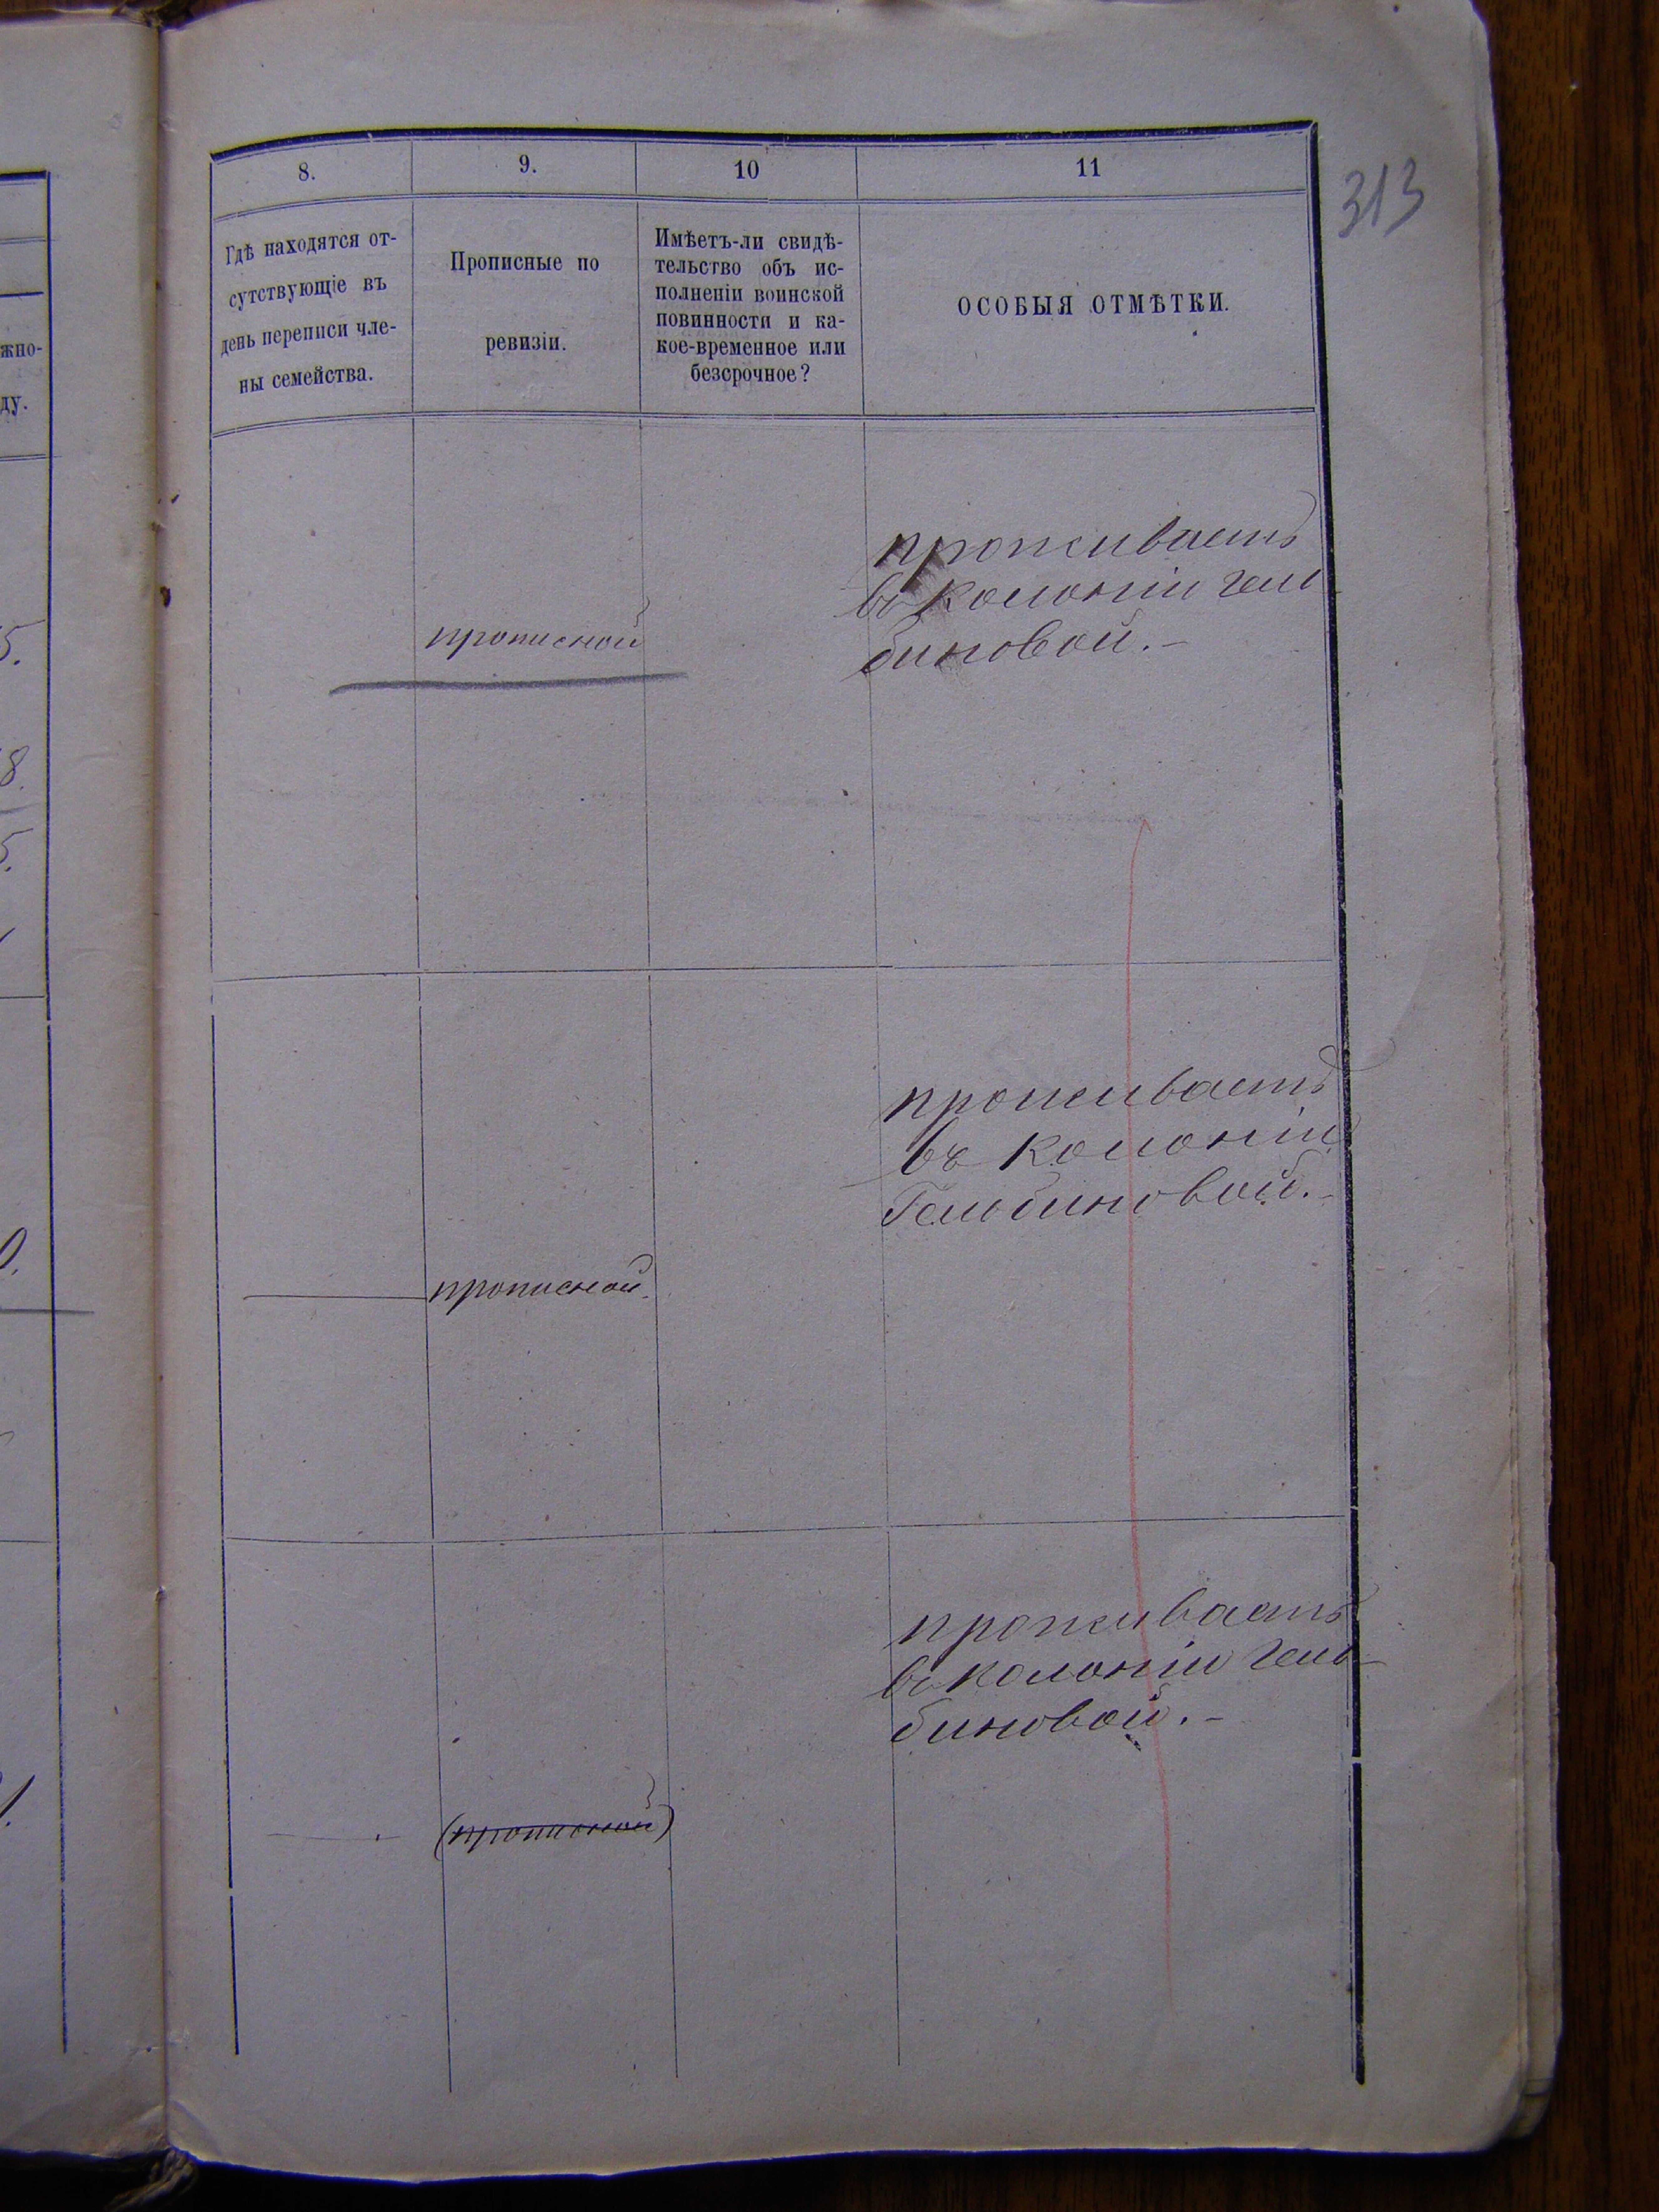 313
8.
9.
10
11
Гдѣ находятся от-
сутствующіе въ
день переписи чле-
ны семейства.
Прописные по
ревизіи.
Имѣетъ-ли свидѣ-
тельство объ ис-
полненіи воинской
повинности и ка-
кое-временное или
безсрочное?
ОСОБЫЯ ОТМѢТКИ.
жно-
ду.
5.
8.
5.
прописной
проживаетъ
въ колоніи гель
биновой.-
0.
прописной.
проживаетъ
въ колоніи
Гельбиновой.-
1.
(прописной)
проживаетъ
въ колоніи гель-
биновой.-